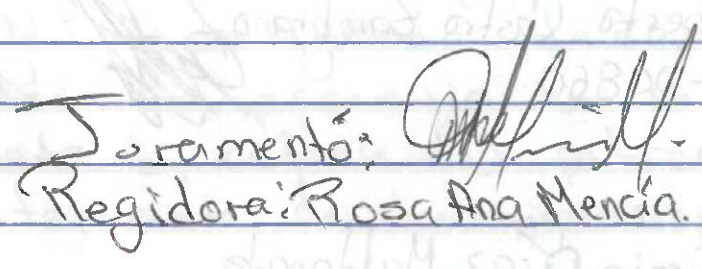 Juramentó:
Regidora: Rosa Ana Mencía.